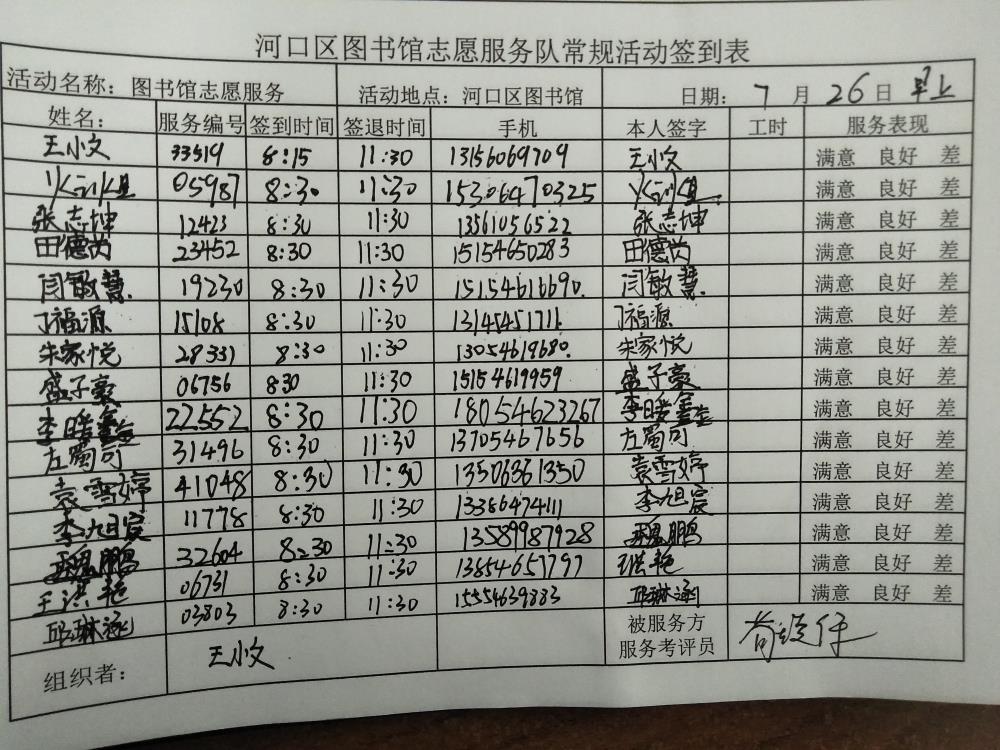 河口区图书馆志愿服务队常规活动签到表
活动名称：图书馆志愿服务 活动地点：河口区图书馆 日期：7月26日 早上
姓名： 服务编号 签到时间 签退时间 手机 本人签字 工时 服务表现
王小文 33519 8:15 11:30 13156069709 王小文 满意 良好 差
05987 8:30 11:30 15306470325 满意 良好 差
张志坤 12423 8:30 11:30 13561056522 张志坤 满意 良好 差
田德芮 23452 8:30 11:30 15154650283 田德芮 满意 良好 差
闫敏慧 19230 8:30 11:30 15154616690 闫敏慧 满意 良好 差
丁福源 15108 8:30 11:30 13145451711 丁福源 满意 良好 差
朱家悦 28331 8:30 11:30 13054619680 朱家悦 满意 良好 差
盛子豪 06756 830 11:30 15154619959 盛子豪 满意 良好 差
李暖鑫 22552 8:30 11:30 18054623267 李暖鑫 满意 良好 差
左蜀可 31496 8:30 11:30 13705467656 左蜀可 满意 良好 差
袁雪婷 41048 8:30 11:30 13506361350 袁雪婷 满意 良好 差
李旭宸 11778 8:30 11:30 13366474111 李旭宸 满意 良好 差
魏鹏 32604 8:30 11:30 13589987928 魏鹏 满意 良好 差
王洪艳 06731 8:30 11:30 13854657797 满意 良好 差
邱琳涵 03803 8:30 11:30 15554639883 邱琳涵 满意 良好 差
组织者： 王小文 被服务方
服务考评员